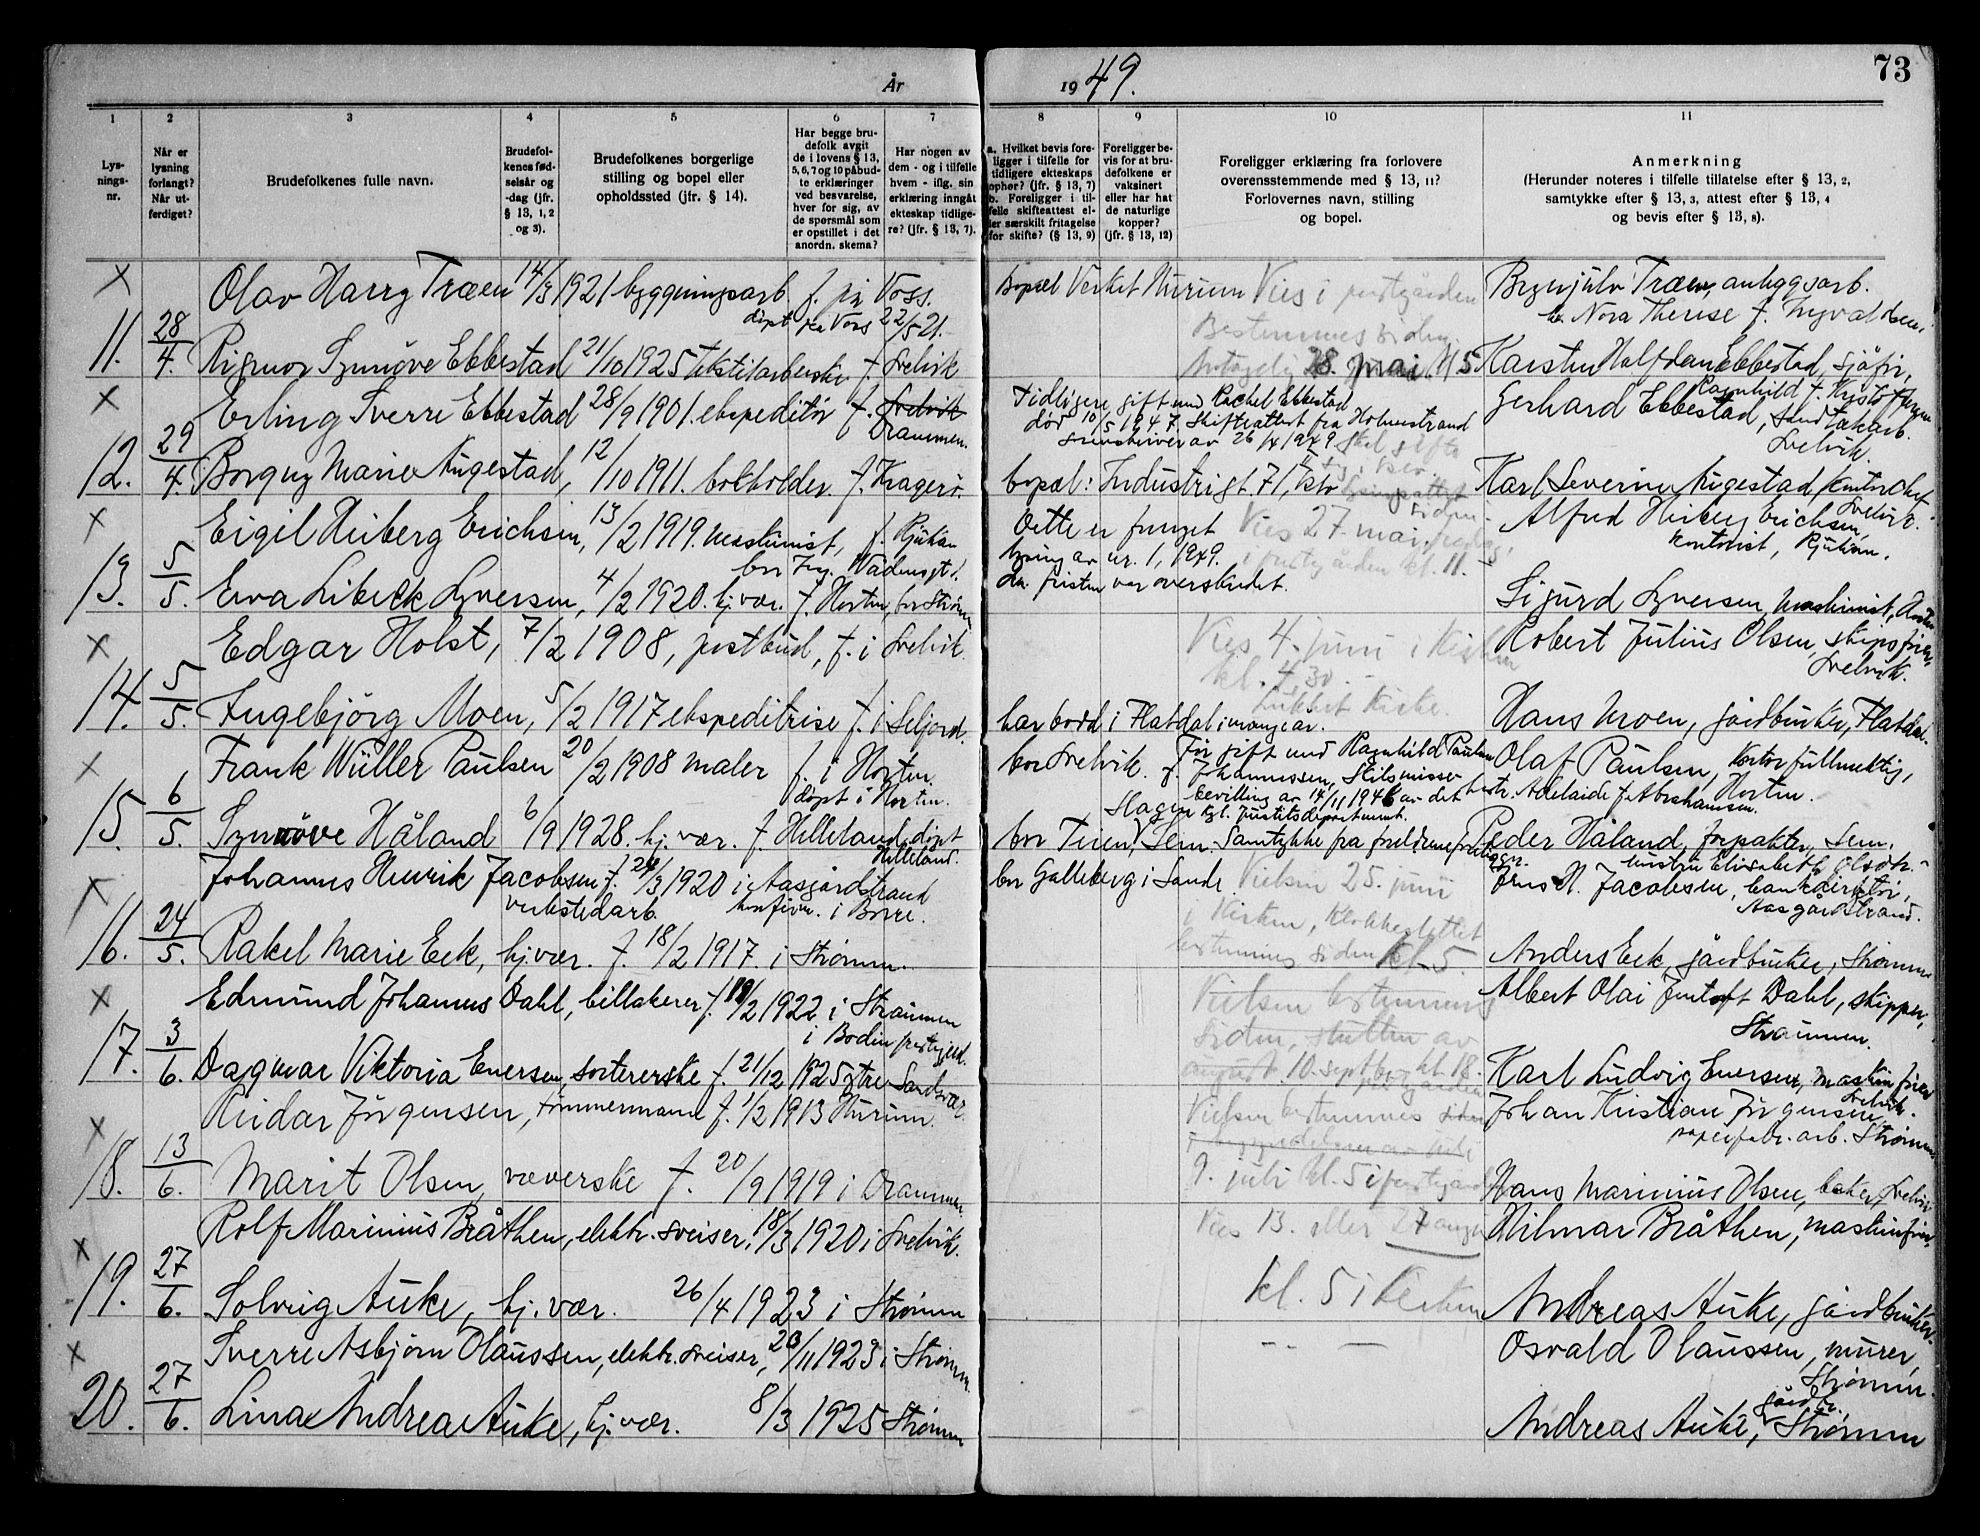 År 1949.
73
1 2 3 4 5 6 7 8 9 10 11
Lysningsnr.
Når er lysning forlangt? Når utferdiget?
Brudefolkenes fulle navn.
Brudefolkenes fødselsår og -dag (jfr. § 13, 1, 2 og 3).
Brudefolkenes borgerlige stilling og bopel eller opholdssted (jfr. § 14).
Har begge brudefolk avgit de i lovens § 13, 5, 6, 7 og 10 påbudte erklæringer ved besvarelse, hver for sig, av de spørsmål som er opstillet i det anordn. skema?
Har nogen av dem - og i tilfelle hvem - iflg. sin erklæring inngåt ekteskap tidligere? (jfr. § 13, 7).
a. Hvilket bevis foreligger i tilfelle for tidligere ekteskaps ophør? (jfr. § 13, 7) b. Foreligger i tilfelle skifteattest eller særskilt fritagelse for skifte? (§ 13, 9)
Foreligger bevis for at brudefolkene er vaksinert eller har hat de naturlige kopper? (jfr. § 13, 12)
Foreligger erklæring fra forlovere overensstemmende med § 13, 11? Forlovernes navn, stilling og bopel.
Anmerkning (Herunder noteres i tilfelle tillatelse efter § 13, 2, samtykke efter § 13, 3, attest efter § 13, 4 og bevis efter § 13, 8).
x Olav Harry Træen 14/3 1921 byggningsarb. f. på Voss. bopæl Verket Hurum Vies i prestgården Brynjulv Træen, anleggsarb.
døpt på Voss 22/5 21. Bestemmes siden. Nora Therese f. Ingvaldsen
11. 28/4. Rigmor Synnøve Ebbestad 21/10 1925 tekstilarberske f. Svelvik 28. mai Kl 5 Karsten Halfdan Ebbestad, sjåfør,
Ragnhild f.
x Erling Sverre Ebbestad 28/9 1901. ekspeditør f. Svelvik Drammen. Tidligere gift med Rachel Ebbestad Gerhard Ebbestad, sandtakarb. Svelvik.
død 10/5 1947. Skifteattest fra Holmestrand
sorenskriver av 26/4 1949.
12. 29/4. Borgny Marie Augestad, 12/10 1911. bokholder. f. Kragerø. bopæl: Industrigt. 71, Oslo Karl Severin Augestad, kontorchef Svelvik.
x Eigil Heiberg Erichsen, 13/2 1919. maskinist, f. Rjukan Dette er fornyet Vies 27. mai, fredag, Alfred Heiberg Erichsen,
lysning av nr. 1, 1949. i prestegården kl. 11. kontorist, Rjukan.
13. 5/5. Eva Libeck Syversen, 4/2 1920. hj.vær. f. Horten, bor Strømm da fristen var overskredet. Sigurd Syversen, maskinist, Horten
x Edgar Holst, 7/2 1908, postbud, f. i Svelvik. Vies 4. juni i Kirken Robert Julius Olsen, skipsfører, Svelvik.
kl. 4,30.
Lukket Kirke.
14. 5/5. Ingebjörg Moen, 5/2 1917 ekspeditrise f. i Seljord. har bodd i Flatdal i mange år. Hans Moen, gårdbruker, Flatdal.
x Frank Wüller Paulsen 20/2 1908 maler f. i Horten. bor Svelvik. Før gift med Ragnhild Paulsen Olaf Paulsen, kontorfullmektig,
døpt i Horten. f. Johannessen, Skilsmissebevilling av 14/11 1946 av det kgl. justitsdepartement. Adelaide f. Abrahamsen. Horten.
15. 6/5. Synnøve Håland 6/9 1928. hj.vær. f. Helleland, døpt Helleland. bor Teien, Sem. Samtykke fra foreldrene foreligger. Peder Håland, forpakter, Sem.
Elisabeth Olsdtr.
x Johannes Henrik Jacobsen f. 24/3 1920 i Aasgårdstrand bor Galleberg i Sande. Vielsen 25. juni H. Jacobsen, bankdirektør, Aasgårdstrand.
verkstedarb. konfirm. i Borre. i Kirken,
16. 24/5. Rakel Marie Eek, hj.vær. f. 18/2 1917. i Strømm. bestemmes siden kl. 5. Anders Eek, gårdbruker, Strømm
x Edmund Johannes Dahl, billakerer f. 18/2 1922 i Straumen Vielsen bestemmes Albert Olai Dahl, skipper,
i Bodin prestgjeld. siden, slutten av Straumen.
17. 3/6. Dagmar Viktoria Evensen, sortererske f. 21/12 1925 ytre Sandsvær. august. 10. sept. kl. 18. Karl Ludvig Evensen, maskinfører Svelvik.
x Reidar Jörgensen, tømmermann f. 1/2 1913 Hurum. Vielsen bestemmes siden Johan Kristian Jörgensen,
papirfabr. arb. Strømm
18. 13/6. Marit Olsen, væverske f. 20/9 1919 i Drammen. 9. juli kl. 5 i prestegården Hans Marinius Olsen, baker, Svelvik
x Rolf Marinius Bråthen, elektr. sveiser, 18/3 1920 i Svelvik. Vies 13. eller 27 august Hilmar Bråthen, maskinfører,
19. 27/6. Solveig Auke, hj.vær. 26/4 1923 i Strømm kl. 5 i Kirken Andreas Auke, gårdbruker
x Sverre Asbjørn Olaussen, elektr. sveiser, 23/11 1923 i Strømm. Osvald Olaussen, murer, Strømm.
20. 27/6. Lina Andrea Auke, hj.vær. 8/3 1925 Strømm Andreas Auke, gårdbr. Strømm